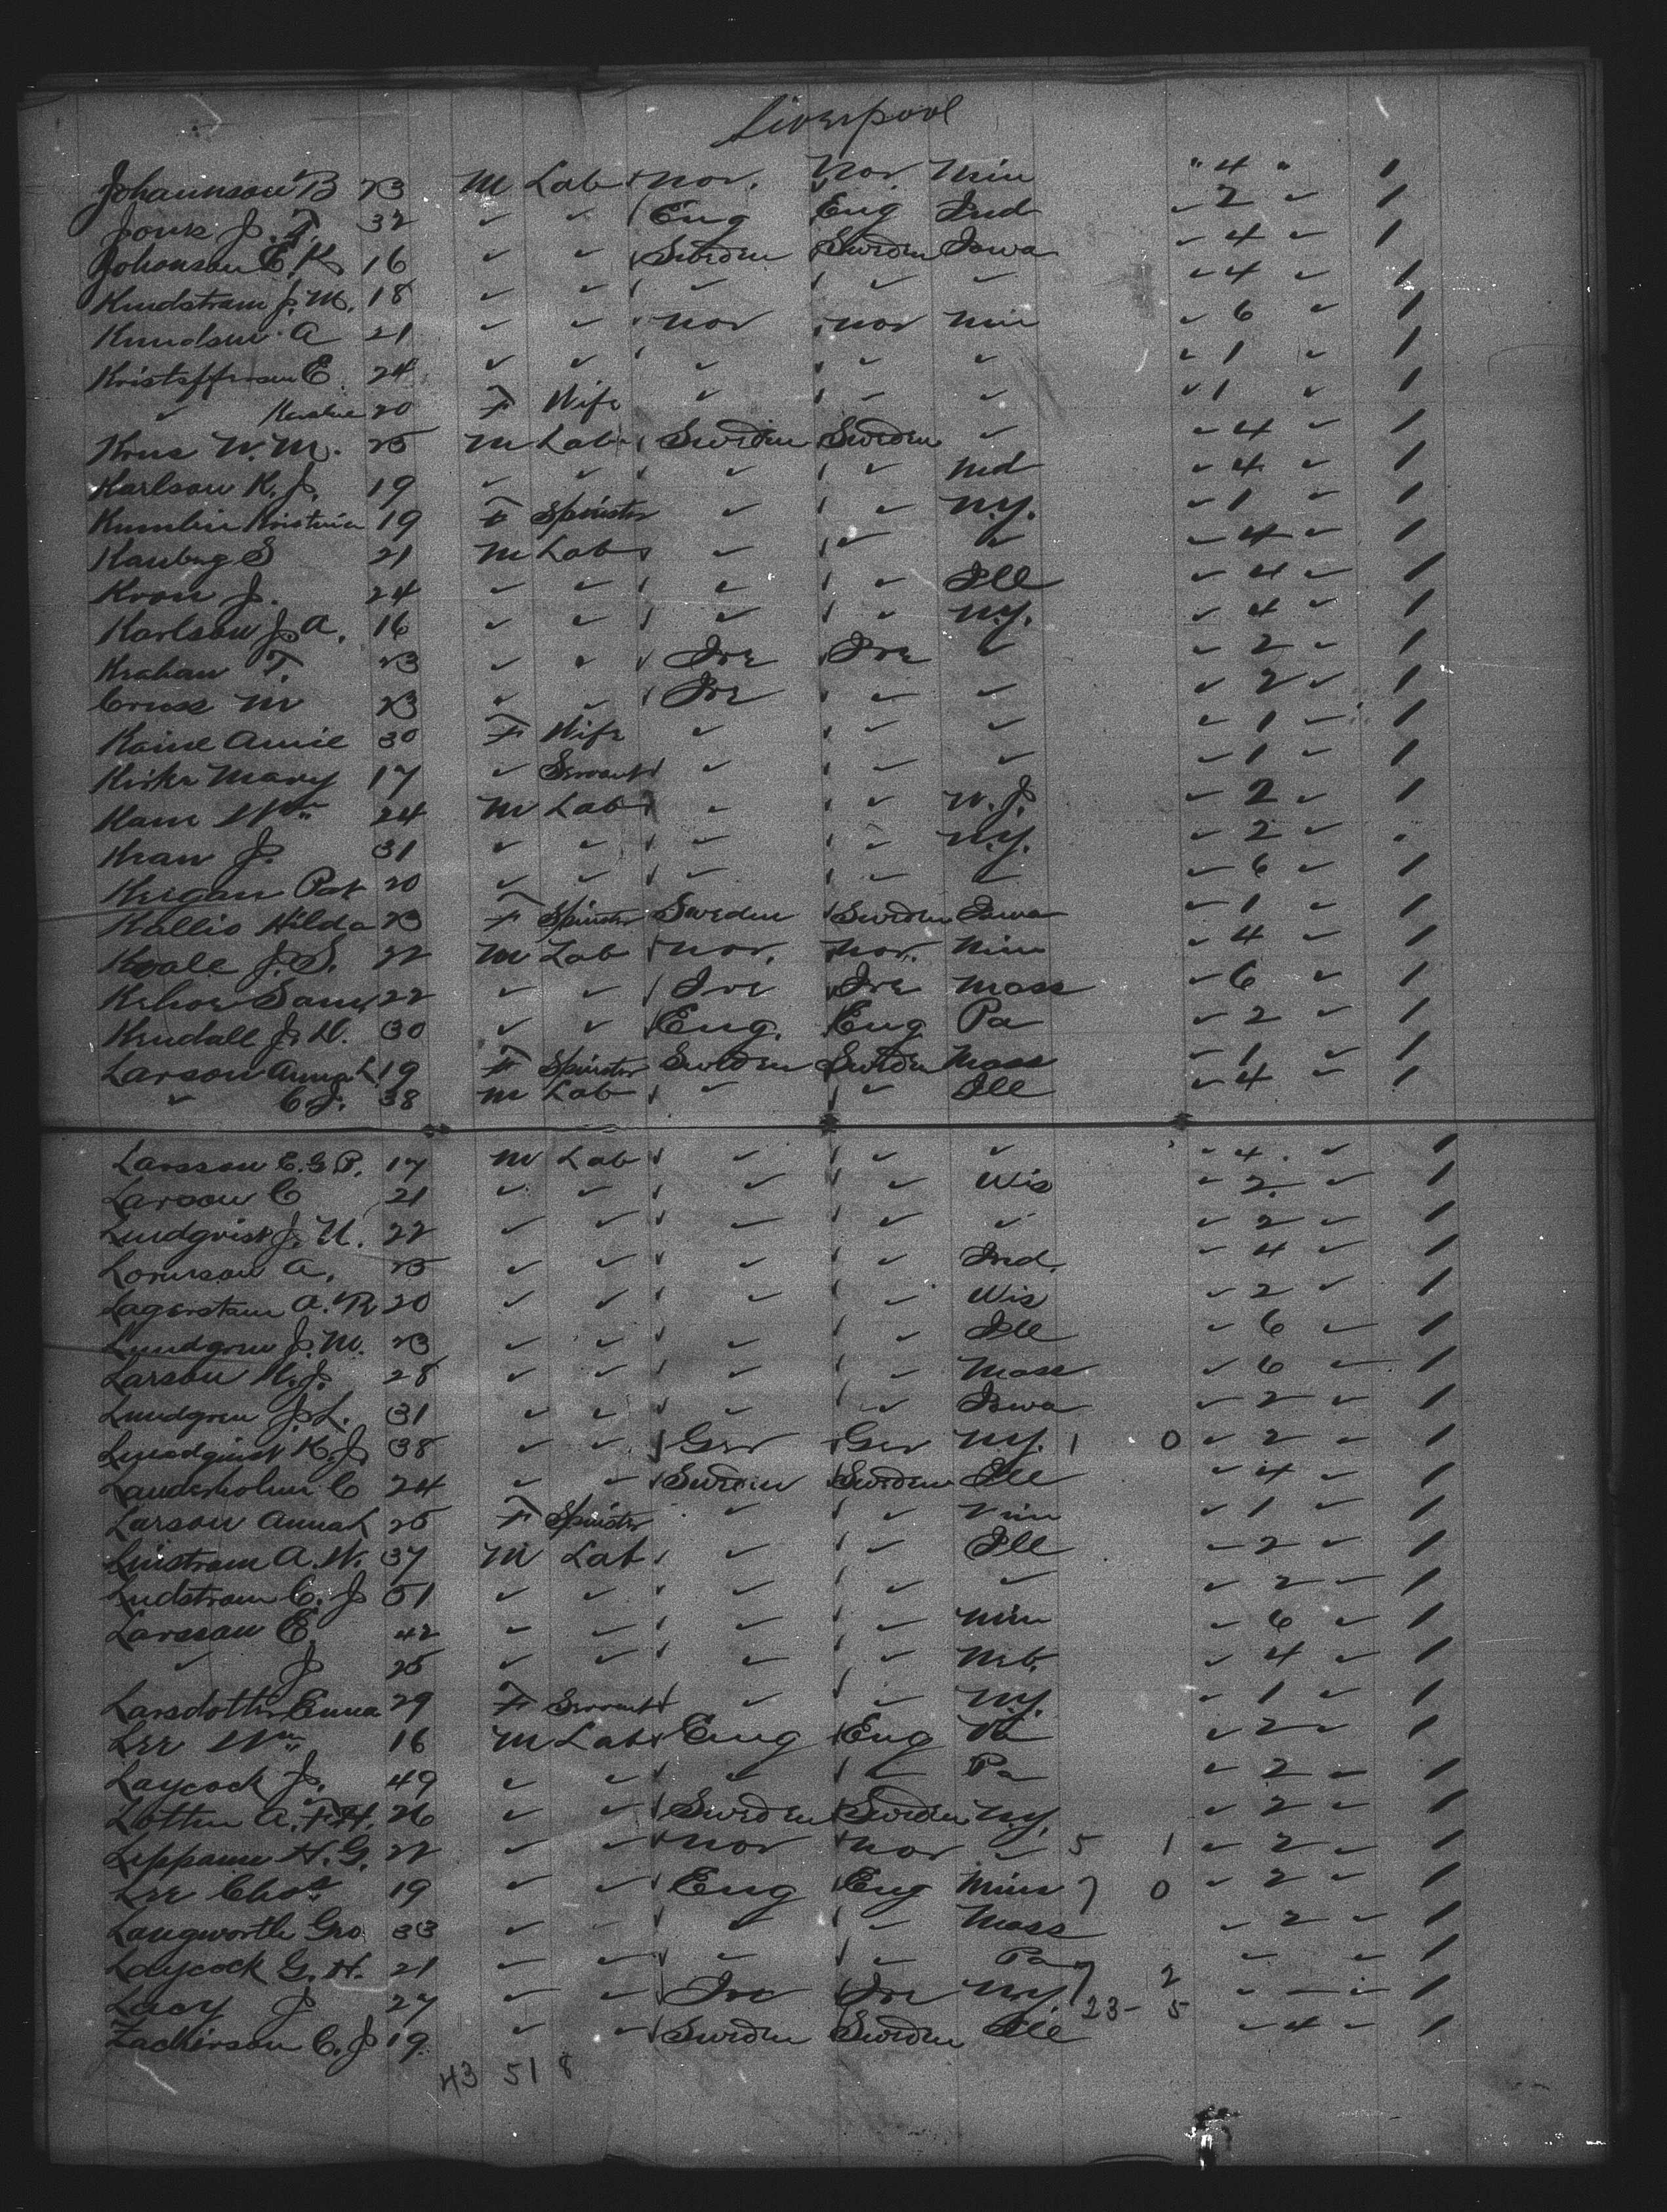 Liverpool
Johannson B 23 M Lab Nor. Nor Min " 4 " 1
Jones J. T. 32 ✓ ✓ Eng Eng Ind ✓ 2 ✓ 1
Johonson E. K. 16 ✓ ✓ Sweden Sweden Iowa ✓ 4 ✓ 1
J. M. 18 ✓ ✓ ✓ ✓ ✓ ✓ 4 ✓ 1
Knudsen A 21 ✓ ✓ Nor Nor Min ✓ 6 ✓ 1
Kristoffersen E. 24 ✓ ✓ ✓ ✓ ✓ ✓ 1 ✓ 1
✓ 20 F Wife ✓ ✓ ✓ ✓ 1 ✓ 1
W. M. 25 M Lab Sweden Sweden ✓ ✓ 4 ✓ 1
Karlson K. J. 19 ✓ ✓ ✓ ✓ Md ✓ 4 ✓ 1
19 F Spinster ✓ ✓ N.Y. ✓ 1 ✓ 1
S 21 M Lab ✓ ✓ ✓ ✓ 4 ✓ 1
Kron J. 24 ✓ ✓ ✓ ✓ Ill ✓ 4 ✓ 1
Karlson J. A. 16 ✓ ✓ ✓ ✓ N.Y. ✓ 4 ✓ 1
T. 23 ✓ ✓ Ire Ire ✓ ✓ 2 ✓ 1
M 23 ✓ ✓ Ire ✓ ✓ ✓ 2 ✓ 1
Kaine Annie 30 F Wife ✓ ✓ ✓ ✓ 1 ✓ 1
Mary 17 ✓ Servant ✓ ✓ ✓ ✓ 1 ✓ 1
Kane Wm 24 M Lab ✓ ✓ N. J. ✓ 2 ✓ 1
Kean J. 31 ✓ ✓ ✓ ✓ N.Y. ✓ 2 ✓ .
Keigan Pat 20 ✓ ✓ ✓ ✓ ✓ ✓ 6 ✓ 1
Kallio Hilda 23 F Spinster Sweden Sweden Iowa ✓ 1 ✓ 1
Kvale J. S. 22 M Lab Nor. Nor. Min ✓ 4 ✓ 1
Kehoe Saml 22 ✓ ✓ Ire Ire Mass ✓ 6 ✓ 1
Kendall J. D. 30 ✓ ✓ Eng. Eng Pa ✓ 2 ✓ 1
Larson Anna L 19 F Spinster Sweden Sweden Mass ✓ 1 ✓ 1
✓ C. J. 38 M Lab ✓ ✓ Ill ✓ 4 ✓ 1
Larsson E. G. P. 17 M Lab ✓ ✓ ✓ ✓ 4 ✓ 1
Larson C 21 ✓ ✓ ✓ ✓ Wis ✓ 2 ✓ 1
Lindqvist J. U. 22 ✓ ✓ ✓ ✓ ✓ ✓ 2 ✓ 1
A. 25 ✓ ✓ ✓ ✓ Ind. ✓ 4 ✓ 1
Lagerstam A. R. 20 ✓ ✓ ✓ ✓ Wis ✓ 2 ✓ 1
Lundgren J. M. 23 ✓ ✓ ✓ ✓ Ill ✓ 6 ✓ 1
Larson K. J. 28 ✓ ✓ ✓ ✓ Mass ✓ 6 ✓ 1
Lundgren J. L. 31 ✓ ✓ ✓ ✓ Iowa ✓ 2 ✓ 1
K. J. 38 ✓ ✓ Ger Ger N.Y. 1 0 ✓ 2 ✓ 1
Lauderholm C 24 ✓ ✓ Sweden Sweden Ill ✓ 4 ✓ 1
Larson Anna L 25 F Spinster ✓ ✓ Min ✓ 1 ✓ 1
Linstrom A. W. 37 M Lab ✓ ✓ Ill ✓ 2 ✓ 1
Lindstrom C. J 31 ✓ ✓ ✓ ✓ ✓ ✓ 2 ✓ 1
Larsson E. 42 ✓ ✓ ✓ ✓ Min ✓ 6 ✓ 1
✓ J 25 ✓ ✓ ✓ ✓ Neb. ✓ 4 ✓ 1
Larsdotter Emma 29 F Servant ✓ ✓ N.Y. ✓ 1 ✓ 1
Lee Wm 16 M Lab Eng Eng ✓ 2 ✓ 1
Laycock J. 49 ✓ ✓ ✓ ✓ Pa ✓ 2 ✓ 1
A. F. H. 26 ✓ ✓ Sweden Sweden N.Y. ✓ 2 ✓ 1
H. G. 22 ✓ ✓ Nor Nor ✓ 5 1 ✓ 2 ✓ 1
Lee Chas 19 ✓ ✓ Eng Eng Min 7 0 ✓ 2 ✓ 1
Langworth Geo 33 ✓ ✓ ✓ Mass ✓ 2 ✓ 1
Laycock G. H. 21 ✓ ✓ ✓ ✓ Pa 7 2 ✓ ✓ 1
Lacy J 27 ✓ ✓ Ire Ire N.Y. 23 - 5 ✓ ✓ ✓ 1
Zackirson C. J 19 ✓ ✓ Sweden Sweden Ill ✓ 4 ✓ 1
43 51 8